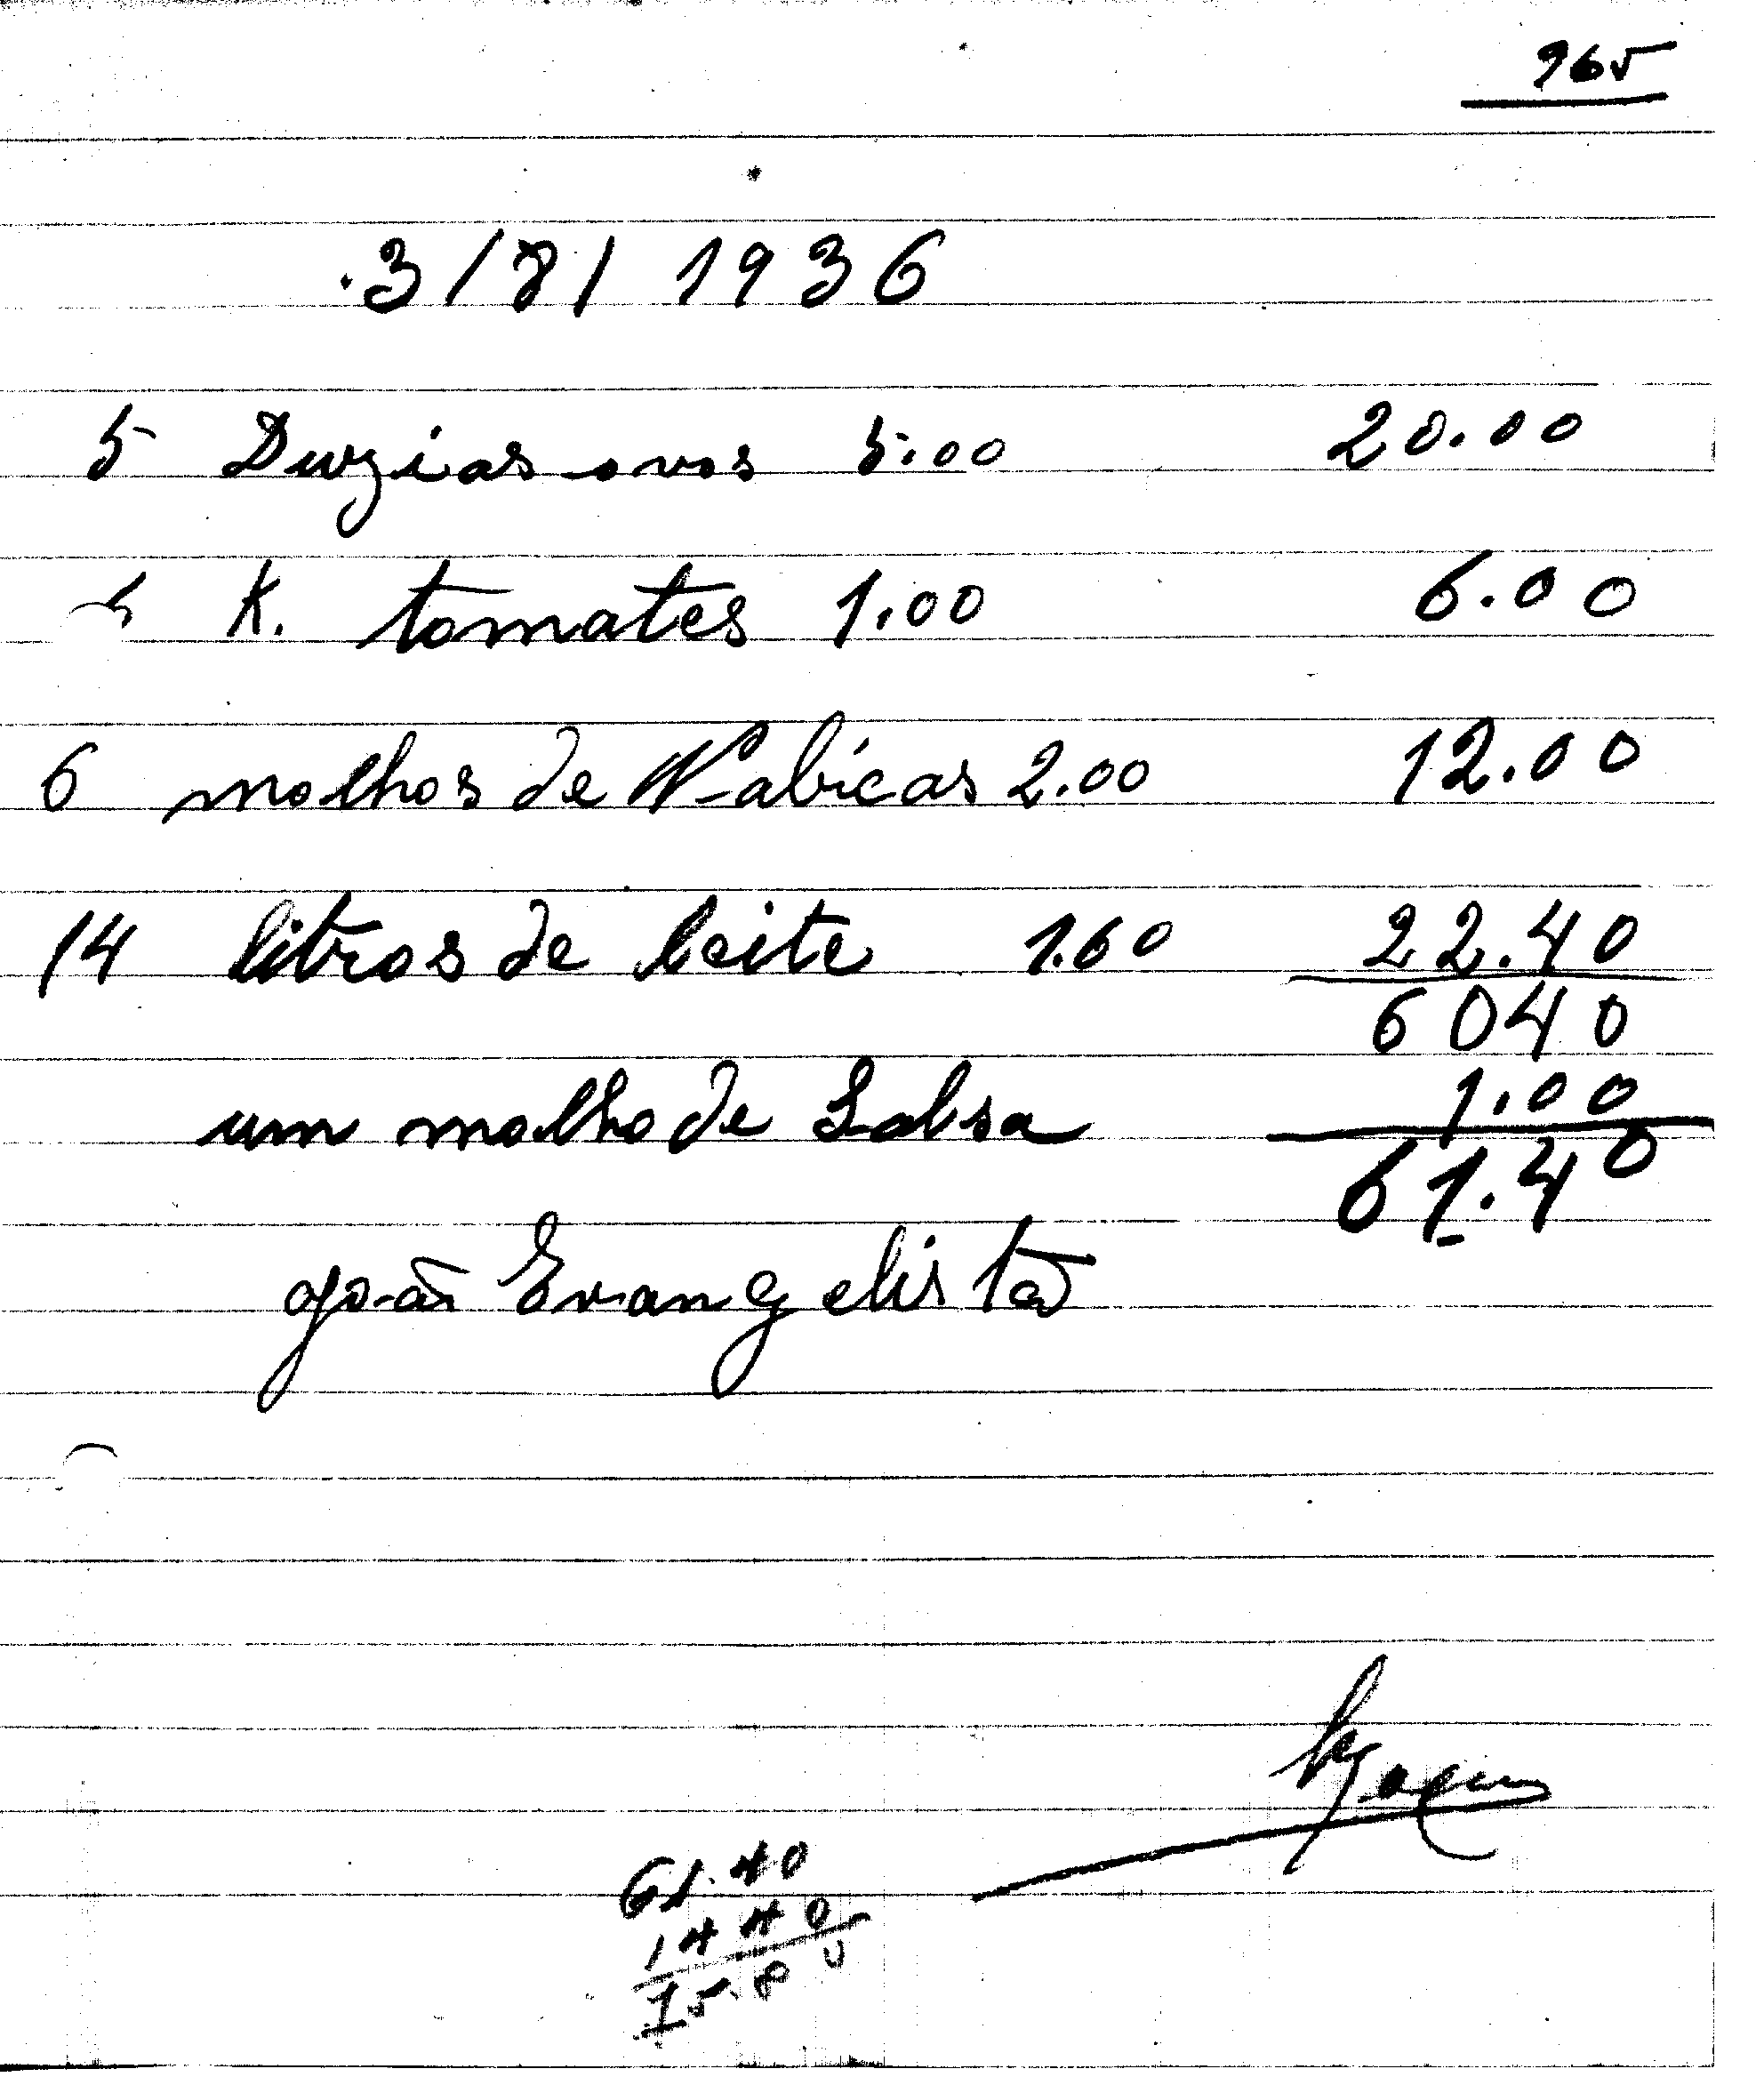 965
3/8/1936
5 Duzias ovos 5.00 20.00
K. tomates 1.00 6.00
6 molhos de Nabicas 2.00 12.00
14 litros de leite 1.60 22.40
6040
um molho de Salsa 1.00
61.40
João Evangelista
61.40
1440
75.80